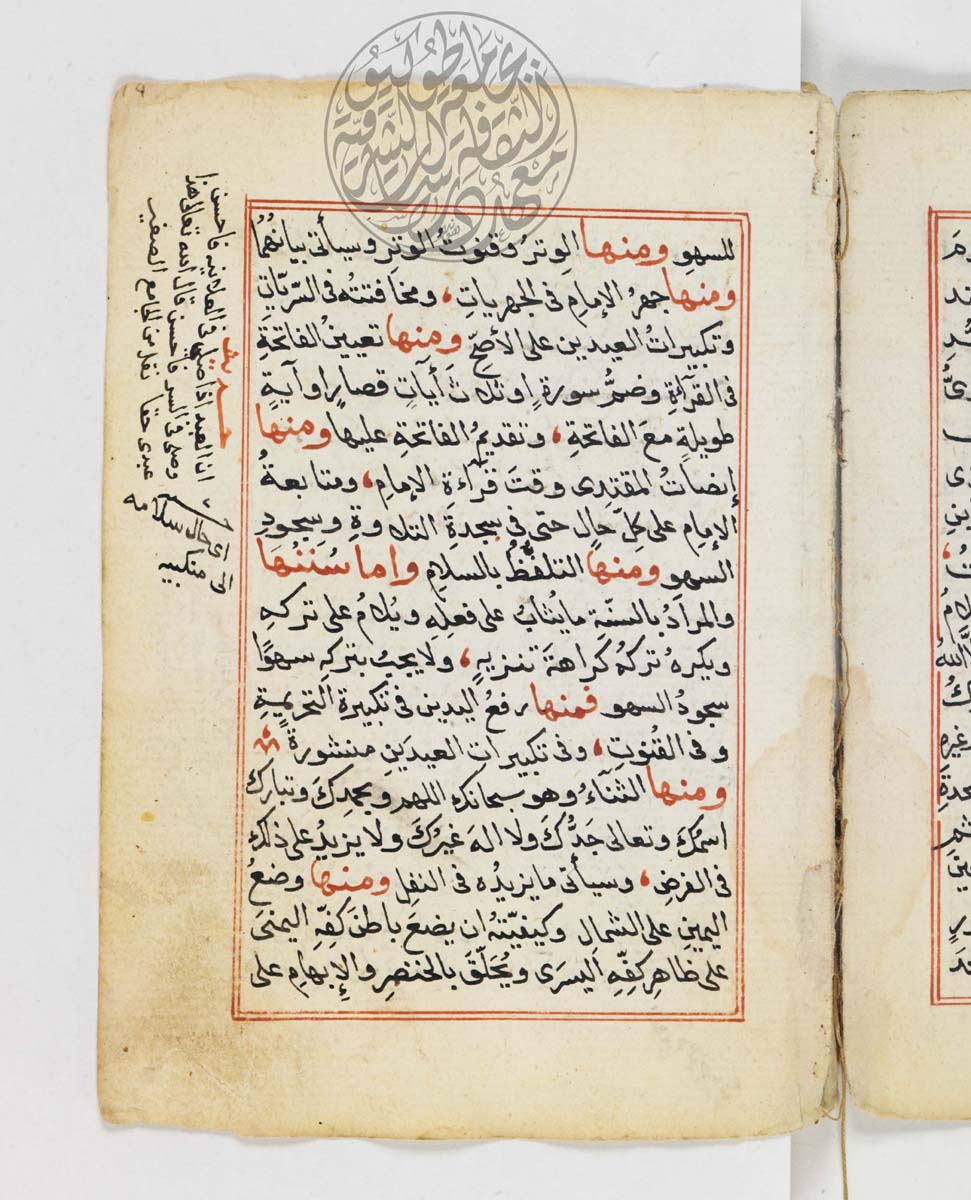 للسهوِ ومنها الوترُ وقنوتُ الوترِ وسيأتى بيانهُمُا
ومنها جهرُ الإمامِ فى الجهرياتِ، ومخافتتُه فى السرّيّاتِ
وتكبيراتُ العيدينِ على الأصحِّ ومنها تعيينُ الفاتحةِ
فى القرآءةِ وضمُّ سورةٍ اوثلاثَ أيآتٍ قصارٍ اوآيةٍ
طويلةٍ معَ الفاتحةِ، وتقديمُ الفاتحةِ عليها ومنها
إنصاتُ المقتدِى وقتَ قرآءةِ الإمامِ، ومتابعةُ
الإمامِ على كلِّ حالٍ حتى فى سجدةِ التلاوةِ وسجودِ
السهوِ ومنها التلفُّظُ بالسلامِ واما سُنَنُها
والمرادُ بالسنّةِ مايُثابُ على فعلِهِ ويُلامُ على تركِهِ
ويكرهُ تركُهُ كراهةَ تنزيهٍ، ولايجبُ بتركِهِ سهوًا
سجودُ السهوِ فمنها رفعُ اليدينِ فى تكبيرةِ التحريمةِ
وفى القُنوتِ، وفى تكبيراتِ العيدَينِ منشورةً
ومنها الثنآءُ وهو سبحانك اللهم وبحمدِكَ وتبارك
اسمُكَ وتعالى جَدُّكَ ولااله غيرُكَ ولايزيدُ على ذلك
فى الفرضِ، وسيأتى مايزيدُه فى النفلِ ومنها وضعُ
اليمينِ على الشمالِ وكيفيّتُهُ ان يضعَ باطنَ كفِّهِ اليمنىَ
على ظاهرِ كفِّهِ اليسرَى ويُحَلّقَ بالخنصرِ والإبهامِ على
حديث
ان العبد اذا صلى فى العلانيه فاحسن
وصلى فى السر فاحسن قال الله تعالى هذا
عبدى حقا نقل من الجامع الصغير
اى حال سلامه
الى منكبيه